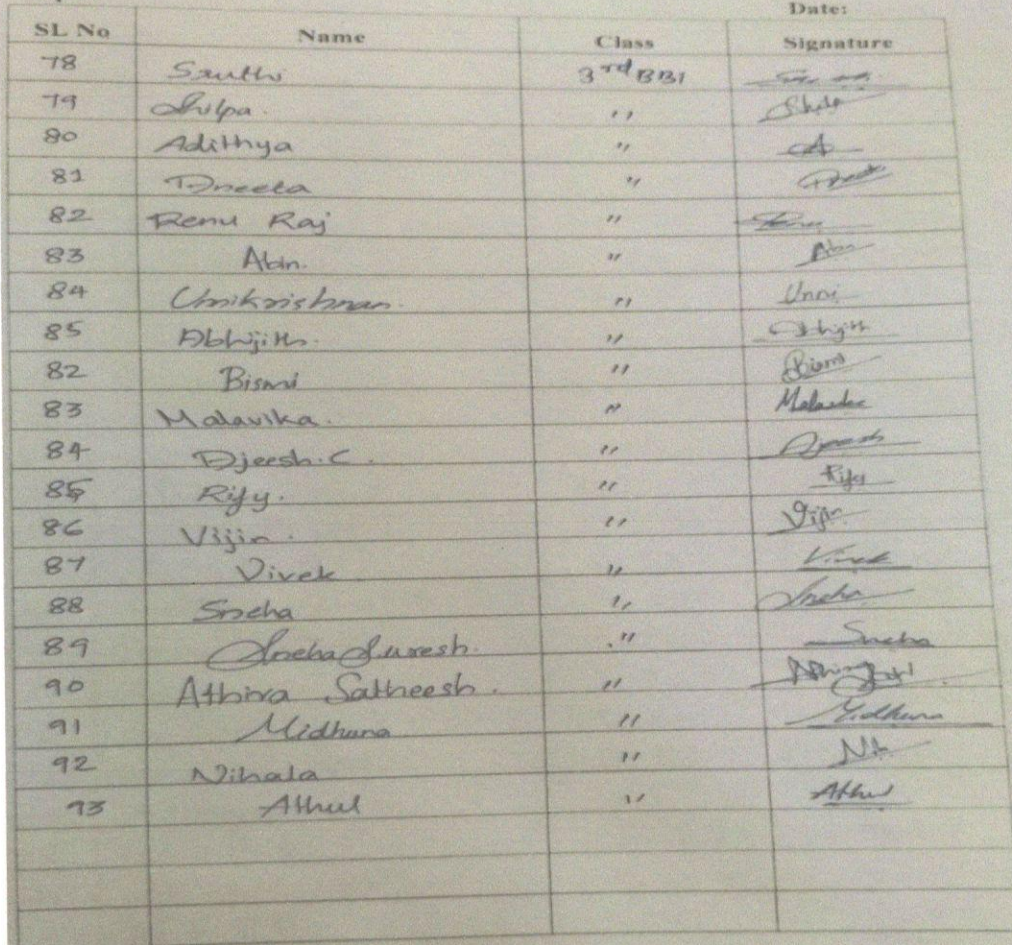 Date:
SL No Name Class Signature
78 Sruthi 3rd BBI
79 Shilpa. " Shilp
80 Adithya " A
81 Aneeta "
82 Renu Raj " Renu
83 Abin. " Abin
84 Unnikrishnan. " Unni
85 Abhijith. " Abhijith
82 Bismi " Bismi
83 Malavika. "
84 Ajeesh.C. " Ajeesh
85 Rify. " Rify
86 Vijin. " Vijin
87 Vivek " Vivek
88 Sneha " Sneha
89 Sneha Suresh. " Sneha
90 Athira Satheesh. "
91 Midhuna " Midhuna
92 Nihala "
93 Athul " Athul